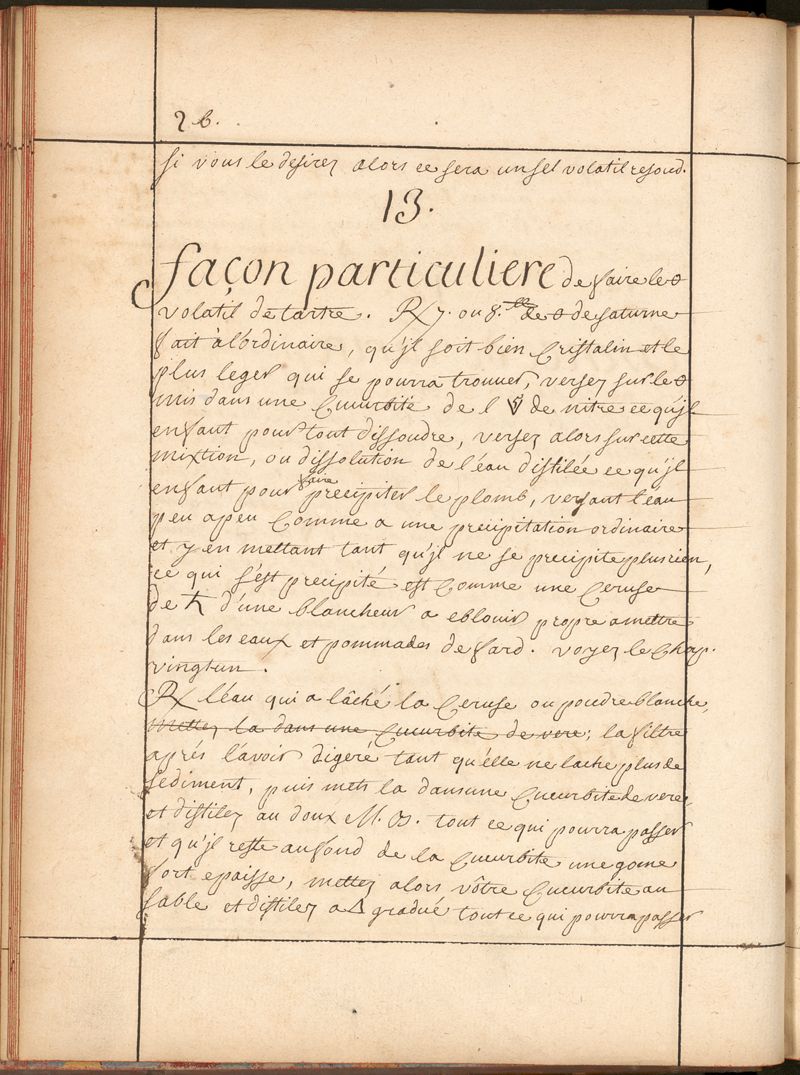 26.
si vous le desirez alors ce sera un sel volatil resoud.
13.
façon particuliere de faire le 🜔
volatil de tartre. ℞ 7. ou 8. lb de 🜔 de saturne
fait à l'ordinaire, qu'jl soit bien Cristalin et le
plus leger qui se pourra trouuer, versez sur le 🜔
mis dans une Cucurbite de l' 🜆 de nitre ce qu'jl
en faut pour tout dissoudre, versez alors sur cette
mixtion, ou dissolution de l'éau distilée ce qu'jl
en faut pour faire precipiter le plomb, versant l'eau
peu a peu Comme a une precipitation ordinaire
et y en mettant tant qu'jl ne se precipite plus rien,
ce qui s'est precipité est Comme une Ceruse
de ♄ d'une blancheur a eblouir propre a mettre
dans les eaux et pommades de fard. voyez le Chap.
vingtun.
℞ l'éau qui a lâché la Ceruse ou poudre blanche,
mettez la dans une Cucurbite de vere; la filtre
aprés l'avoir digeré tant qu'élle ne lache plus de
sediment, puis mets la dans une Cucurbite de vere,
et distilez au doux M. B. tout ce qui pourra passer
et qu'jl reste au fond de la Cucurbite une gome
fort epaisse, mettez alors vôtre Cucurbite au
sable et distilez a 🜂 gradué tout ce qui pourra passer